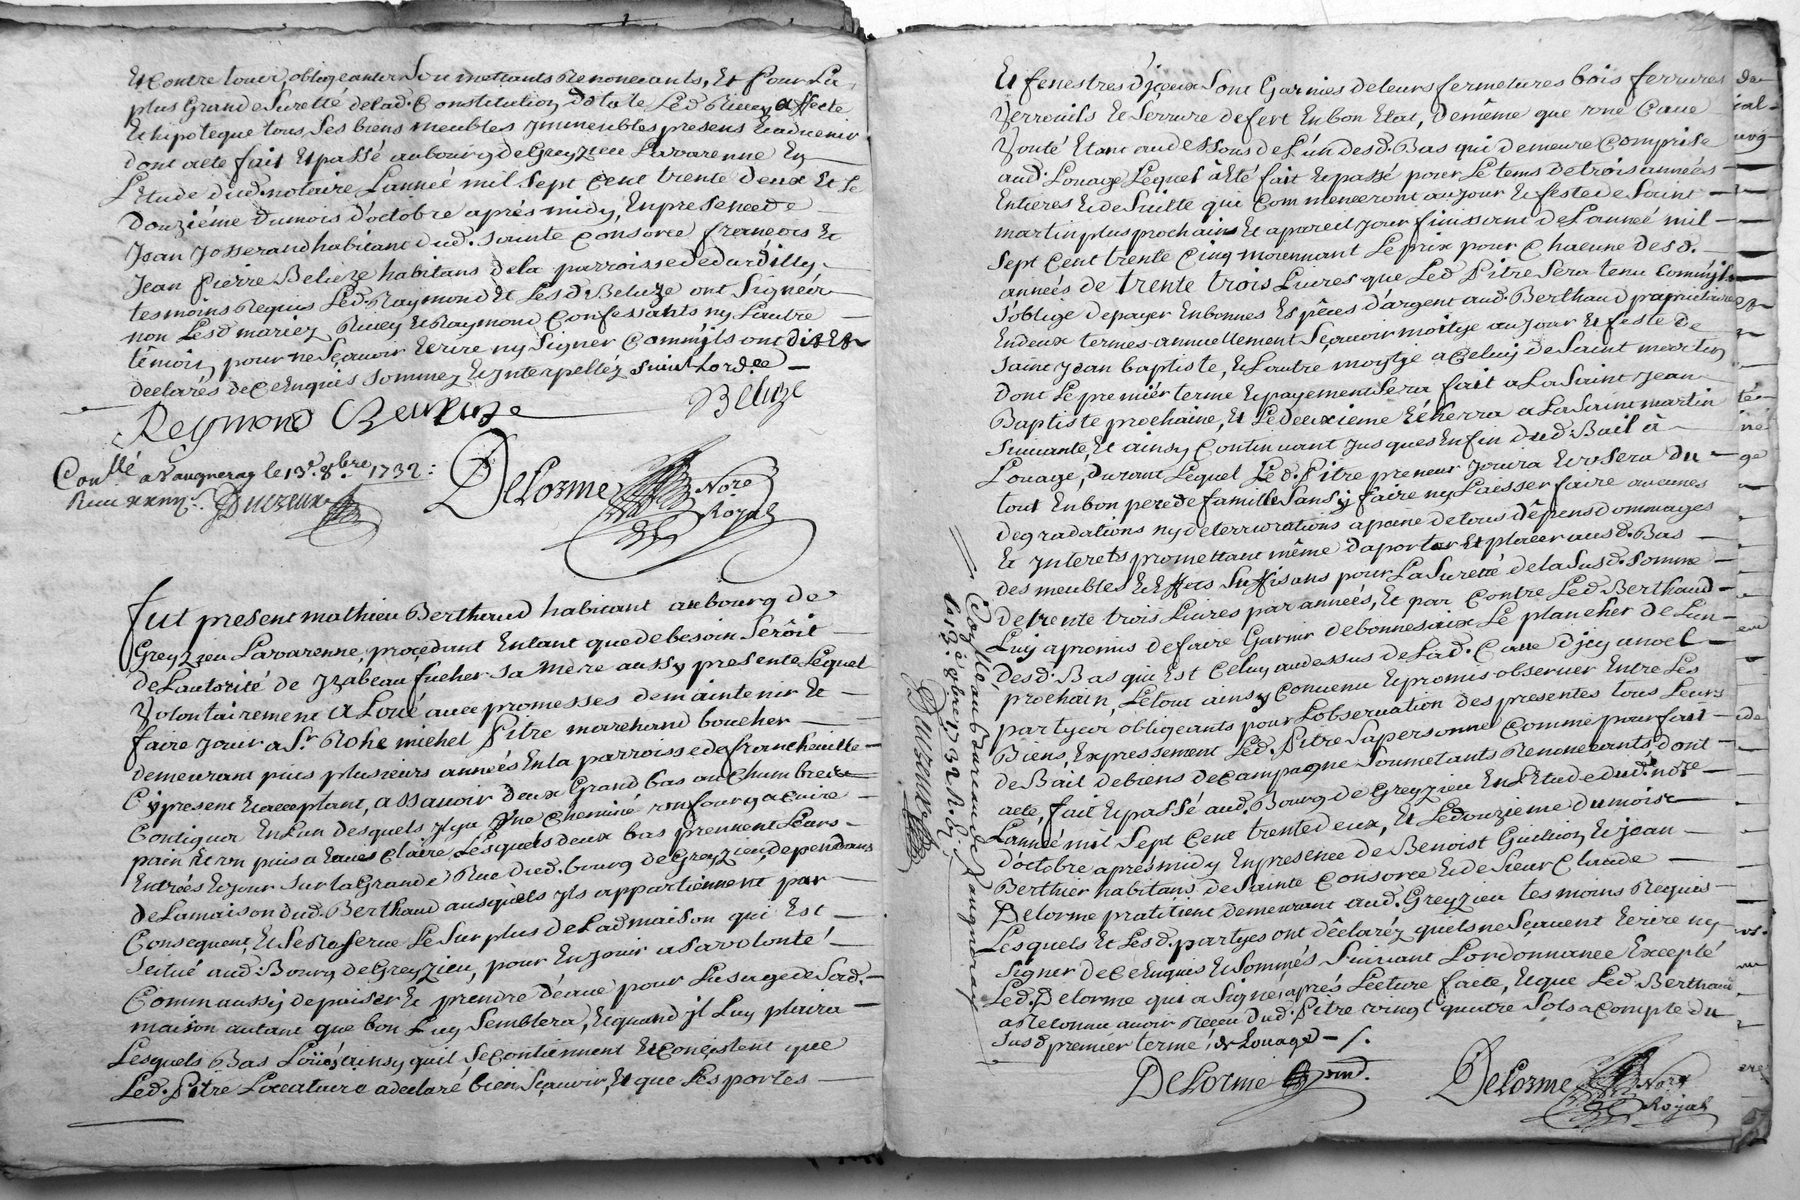 Et contre touer, obligeants Soumettants Renonceants, Et Pour La
plus Grande Suretté de lad. Constitution dotale Led. Ruzey affecte
Et hipoteque tous Ses biens meubles Immeubles presens Et advenir
dont acte fait Et passé au bourg de Greyzieu Lavarenne En
L'Etude dud. notaire L'anneé mil Sept Cent trente deux Et Le
Douziéme du mois d'octobre aprés midy, En presence de
Jean Josserand habitant dud. Sainte Consorce françois Et
Jean Pierre Beluze habitans de la parroisse de dardilly
tesmoins Requis Led. Raymond Et Lesd. Beluze ont Signér
non Lesd mariez Et Raymond Confessants ny Lautre
témoin, pour ne Sçauoir Ecrire ny Signer Comm'ils ont dit Et
declarés de Ce Enquis Sommez Et Interpelléz Suiuant Lord.ce
Reymond Beluze
Beluze
Con.llé a Vaugneray le 13.e 8bre 1732:
Receu
Duzeux
DeLorme Nore
Royal
Fut present mathieu Berthaud habitant au bourg de
Greyzieu Lavarenne, procedant Entant que de besoin Seroit
de L'autorité de Izabeau fucher Sa mére aussy presente Lequel
Volontairement a Loüé auec promesses de maintenir Et
faire Jouir a S.r Rohe michel Pitre marchand boucher
demeurant puis plusieurs annés En la parroisse de francheuille
Cy present Et acceptant, a Sauoir deux Grand bas ou Chambres
Contigues En L'un desquels Il y a Une Cheminé un four a Cuire
pain Et un puis a Eaues Claire Lesquels deux bas prennent Leurs
Entrées Et Jour Sur la Grande Rue dud. bourg de Greyzieu, dependans
de La maison dud. Berthaud ausquels Ils appartiennent par
Consequent, Et Se Reserue Le Surplus de Lad maison qui Est
Scitué aud. Bourg de Greyzieu, pour En Jouir a Sa volonté
Comm aussy de puiser Et prendre d'eaue pour L'usage de Sad.
maison autant que bon Luy Semblera, Et quand Il Luy plaira
Lesquels Bas Loüés ainsy quil Se Contiennent Et Concistent que
Led. Pitre Locataire a declaré bien Sçauoir, Et que Les portes
Et fenestres d'jceux Sont Garnies de leurs fermetures bois ferrures
Verreuils Et Serrure de fert En bon Etat, de même que vne Caue
Vouté Etant au dessous de L'un desd. Bas qui demeure Comprise
aud. Louage Lequel â Eté fait Et passé pour Le tems de trois années
Entieres Et de Suitte qui Commenceront au Jour Et feste de Saint
martin plus prochain Et a pareil Jour finissant de L'anneé mil
Sept Cent trente Cinq mouennant Le prix pour Chacune desd.
années de trente trois Liures que Led. Pitre Sera tenu Comm'jl
S'oblige de payer En bonnes Espêces d'argent aud. Berthaud proprietaire
En deux termes annuellement Sçauoir moitye au Jour Et feste de
Saint Jean Baptiste, Et L'autre moytyé a Celuy de Saint martin
Dont Le premiér terme Et payement Sera fait a La Saint Jean
Baptiste prochaine, Et Le deuxieme Echerra a La Saint martin
Suiuante, Et ainsy Continuant Jusques En fin dud. Bail â
Louage, Durant Lequel Led. Pitre preneur Jouira Et vsera du
tout En bon pere de famille Sans y faire ny Laisser faire aucunes
degradations ny deterriorations a peine de tous dêpens dommages
Et Interets promettant même d'aporter Et placer ausd. Bas
des meubles Et Effets Suffisans pour La Sureté de la Susd. Somme
de trente trois Liures par années, Et par Contre Led. Berthaud
Luy a promis de faire Garnir de bonnes aix Le plancher de L'un
desd. Bas qui Est Celuy au dessus de Lad. Caue D'jcy a noel
prochain, Le tout ainsy Conuenu Et promis obseruer Entre Les
partyes obligeants pour L'obseruation des presentes tous Leurs
Biens, Expressement Led. Pitre Sa personne Comme pour fait
de Bail de biens de Campagne Soumetants Renonceants, dont
acte, fait Et passé aud. Bourg de Greyzieu En L'Etude dud. nore
L'année mil Sept Cent trente deux, Et Le douzieme du mois
d'octobre aprés midy En presence de Benoist Guillion Et Jean
Berthier habitans de Sainte Consorce Et de Sieur Claude
Delorme pratitient demeurant aud. Greyzieu tesmoins Requis
Lesquels Et Lesd. partyes ont dêclaréz quels ne Sçauent Ecrire ny
Signer de Ce Enquis Et Sommés Suiuant L'ordonnance Excepté
Led. Delorme qui a Signé, aprés Lecture faite, Et que Led. Berthaud
a Reconnu auoir Reçeu dud. Pitre vingt quatre Sols a Compte du
Susd premier terme, de Louage
DeLorme
DeLorme Nore
Royal
Con.llé au bureau de Vaugneray
le 19.e 8bre 1732
Duzeux